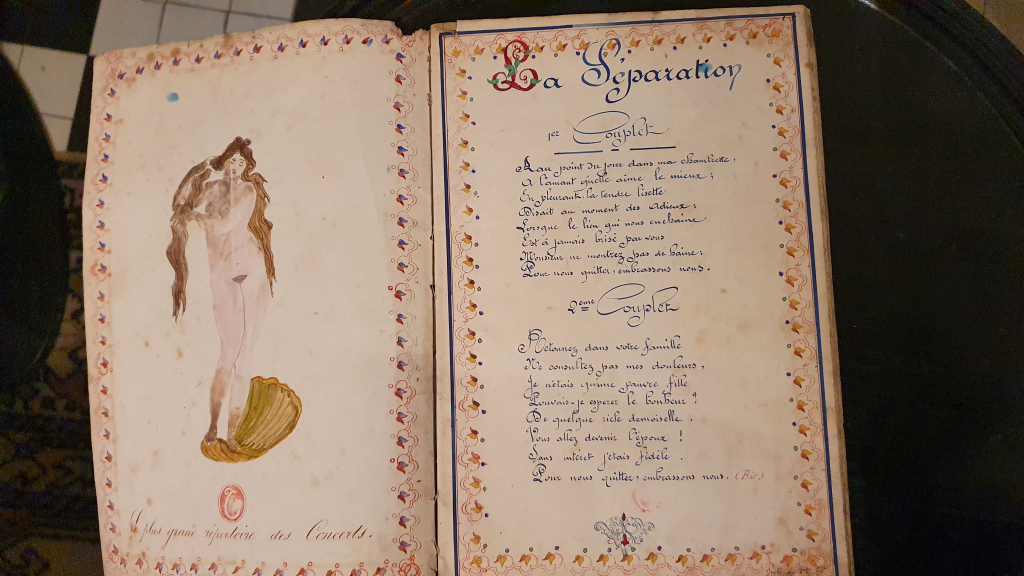 plus grand répertoire des Concerts.
La Séparation
1er Couplet
Aau point du jour dans ma chambrette,
A l'amant quelle aime le mieux ;
En pleurant, la tendre lisette
Disait au moment des Adieux :
Lorsque le lien qui nous enchaine
Est à jamais brisé par vous
Monsieur ne montrez pas de haine ;
Pour nous quitter, embrassons nous.
2eme Couplet
Retounez dans votre famille
Ne consultez pas mes douleurs,
Je n'étais qu'une pauvre fille
Pouvais-je esperer le bonheur ?
De quelque riche demoiselle
Vous allez devenir l'époux !
Sans intéret j'étais fidèle.
Pour nous quitter, embrassons nous. (Bis)